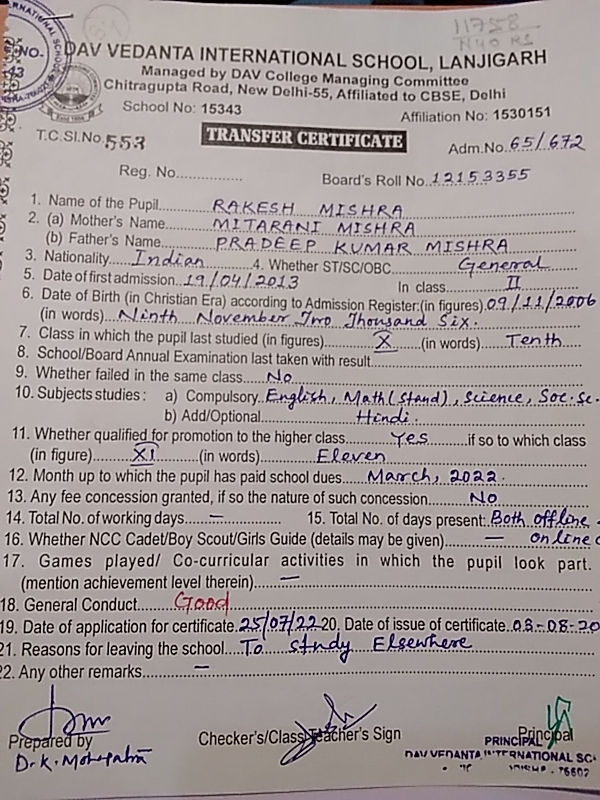 11758
DAV VEDANTA INTERNATIONAL SCHOOL, LANJIGARH
Managed by DAV College Managing Committee
Chitragupta Road, New Delhi-55, Affiliated to CBSE, Delhi
School No: 15343 Affiliation No: 1530151
T.C.Sl.No. 553 TRANSFER CERTIFICATE Adm.No. 65/672
Reg. No. Board's Roll No. 12153355
1. Name of the Pupil RAKESH MISHRA
2. (a) Mother's Name MITARANI MISHRA
(b) Father's Name PRADEEP KUMAR MISHRA
3. Nationality Indian 4. Whether ST/SC/OBC General
5. Date of first admission 19/04/2013 In class II
6. Date of Birth (in Christian Era) according to Admission Register:(in figures) 09/11/2006
(in words) Ninth November Two Thousand Six.
7. Class in which the pupil last studied (in figures) X (in words) Tenth
8. School/Board Annual Examination last taken with result
9. Whether failed in the same class No
10. Subjects studies : a) Compulsory English, Math(Stand), Science, Soc. Sc.
b) Add/Optional Hindi.
11. Whether qualified for promotion to the higher class Yes if so to which class
(in figure) XI (in words) Eleven
12. Month up to which the pupil has paid school dues March, 2022.
13. Any fee concession granted, if so the nature of such concession No
14. Total No. of working days — 15. Total No. of days present: Both offline
16. Whether NCC Cadet/Boy Scout/Girls Guide (details may be given) — online
17. Games played/ Co-curricular activities in which the pupil look part.
(mention achievement level therein) —
18. General Conduct Good
19. Date of application for certificate 25/07/22 20. Date of issue of certificate 03-08-20
21. Reasons for leaving the school To study Elsewhere
22. Any other remarks —
Prepared by Checker's/Class Teacher's Sign Principal
D.K. Mohapatra PRINCIPAL
DAV VEDANTA INTERNATIONAL SC